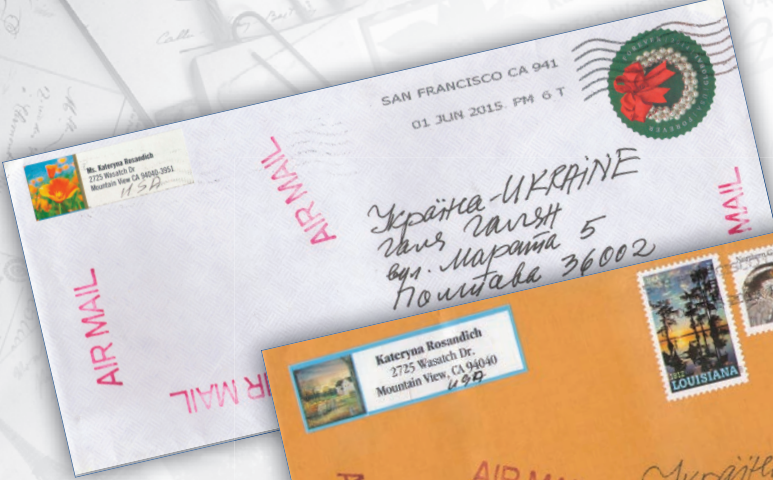 SAN FRANCISCO CA 941
01 JUN 2015 PM 6 T
Ms. Kateryna Rosandich
2725 Wasatch Dr
Mountain View CA 94040-3951
USA
AIR MAIL
AIR MAIL
AIR MAIL
MAIL
Україна-UKRAINE
Галя Галян
вул. Марата 5
Полтава 36002
Kateryna Rosandich
2725 Wasatch Dr.
Mountain View, CA 94040
USA
LOUISIANA
AIR MAIL